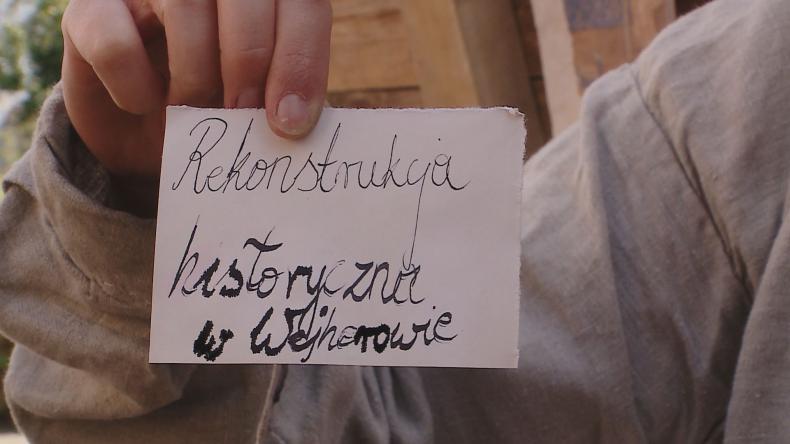 Rekonstrukcja
historyczna
w Wejherowie